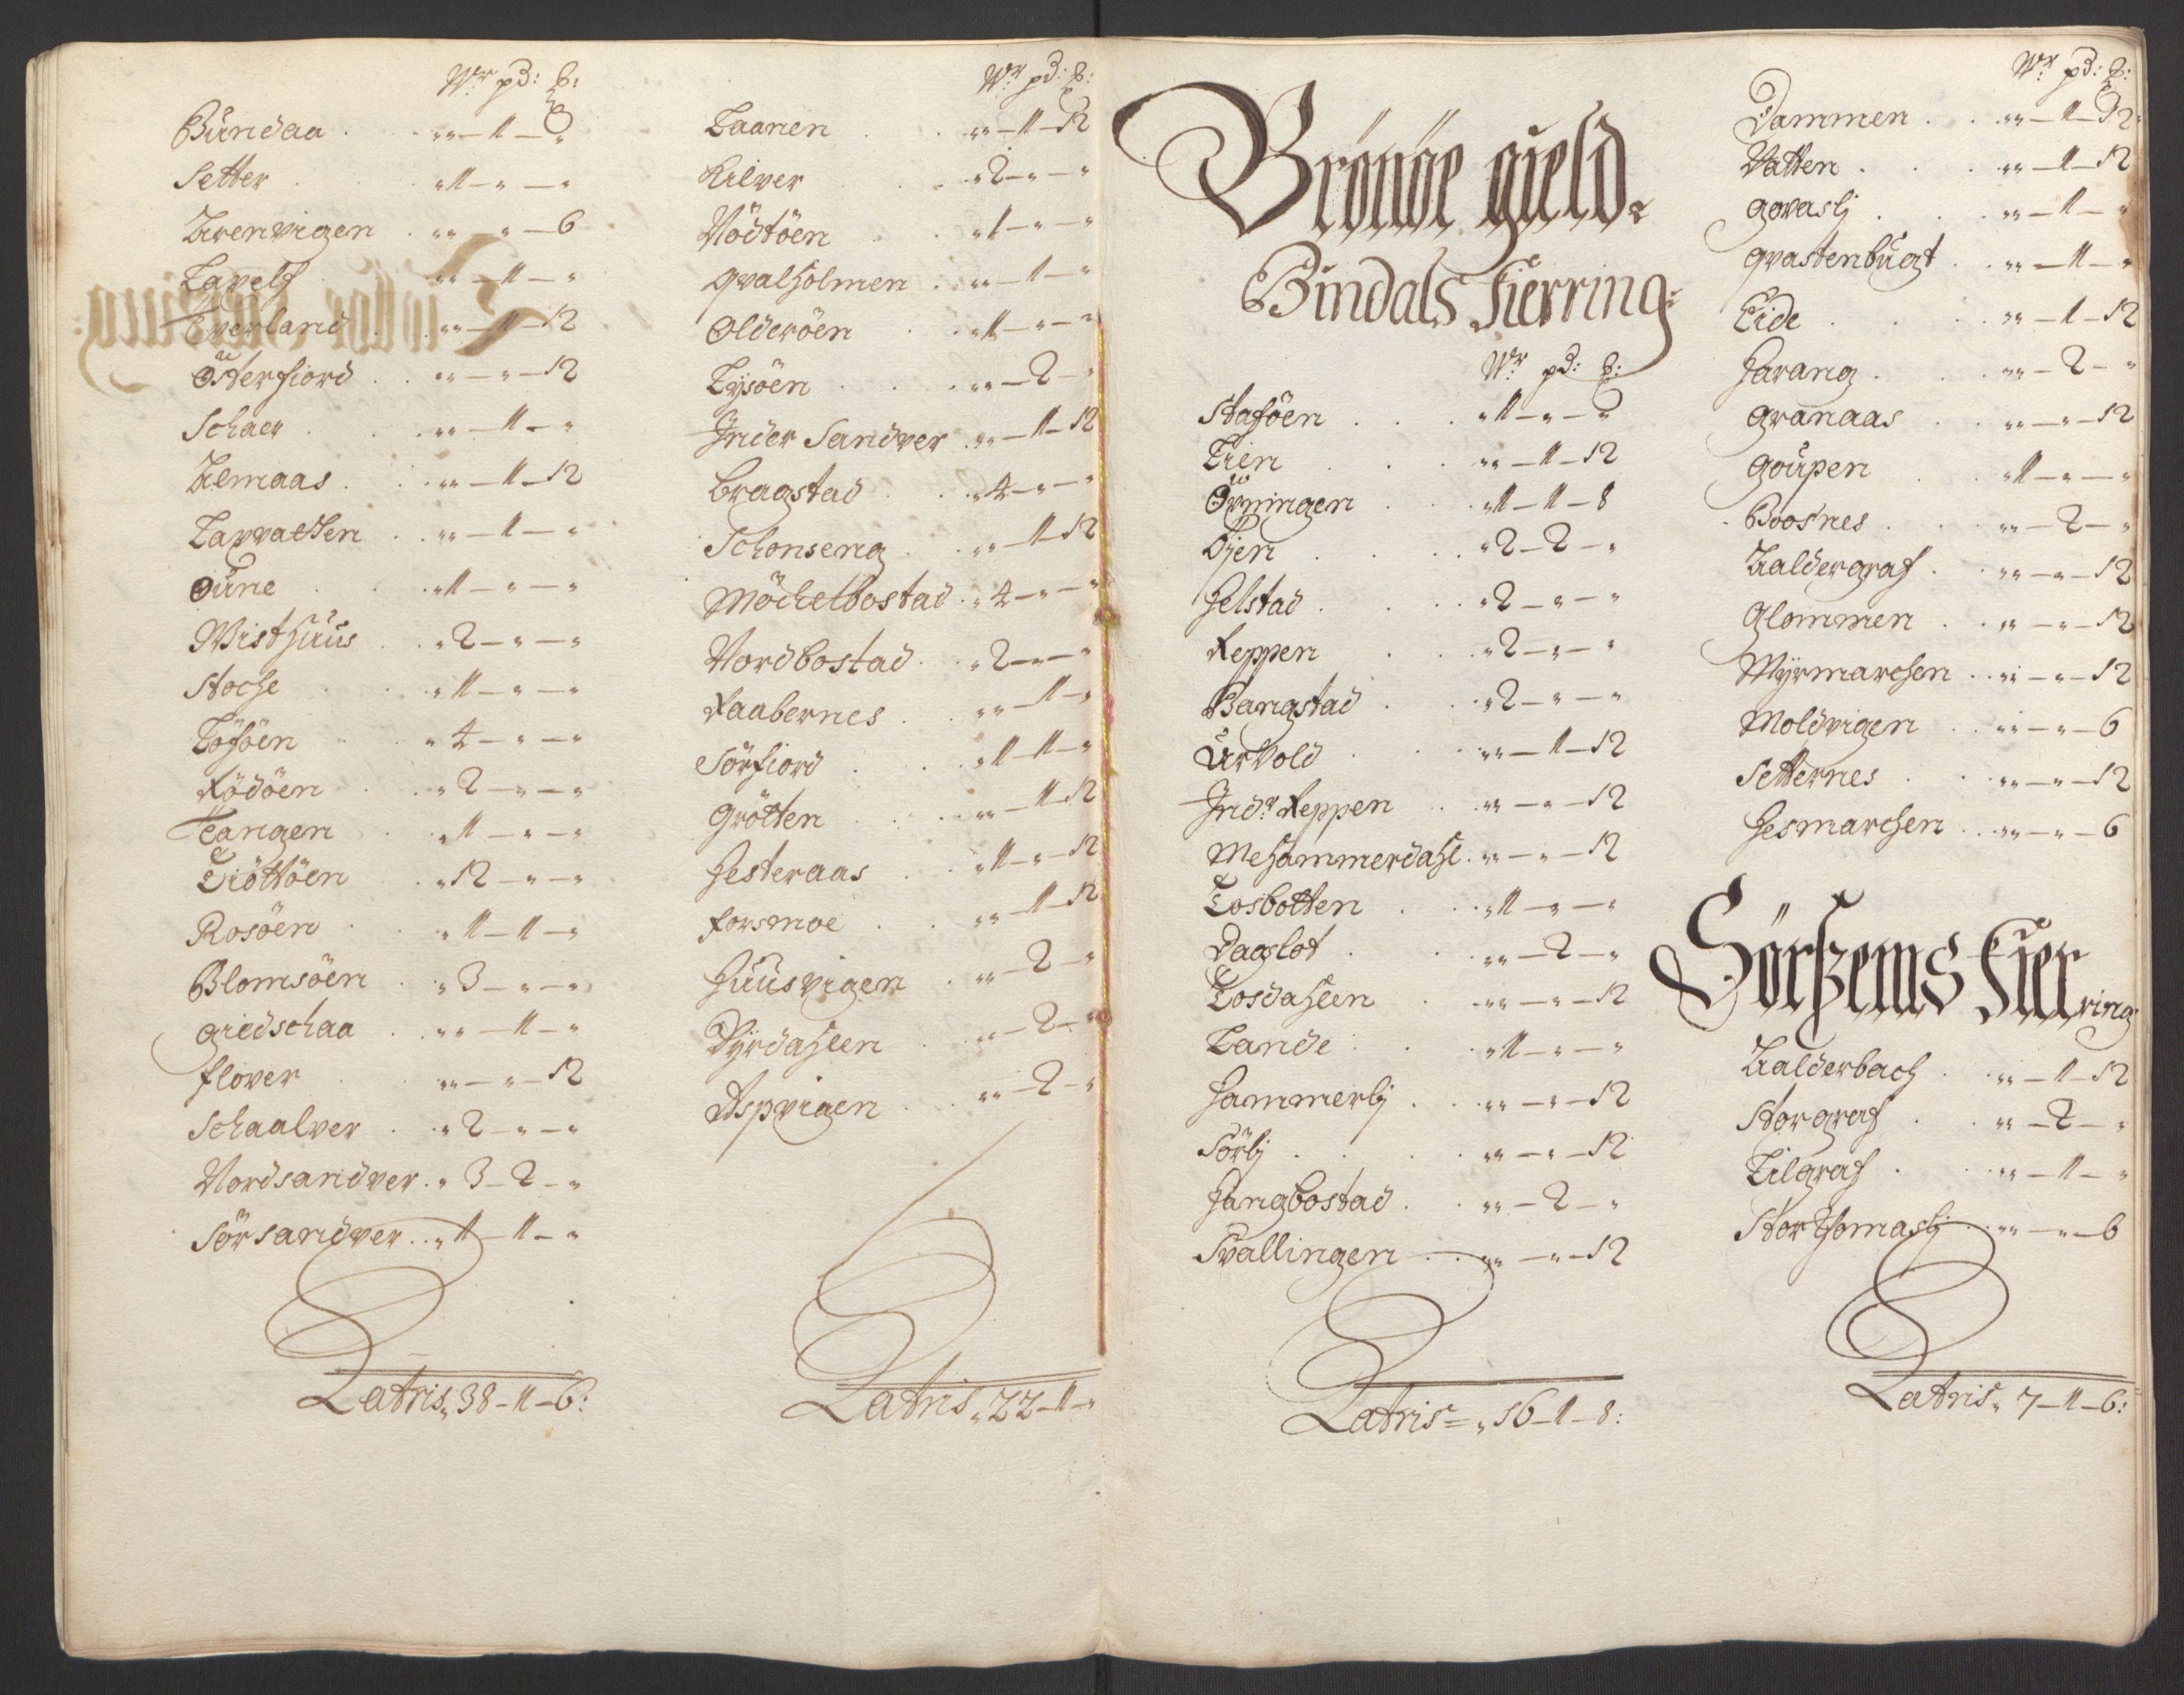 Wr pd: 
Bündaa . . „„ — 1 — „
Setter . . „ 1 — „ — „
Urenvigen . „„ — „ — 6
Lavelf . „„ — 1 — „
Everland . „„ — 1 — 12
Österfiord . . „„ — „ — 12
Schaer . . „„ — 1 — „
Almaas . . „„ — 1 — 12
Larvatten . . „„ — 1 — „
Öune . . „ 1 — „ — „
Wisthuus . . „ 2 — „ — „
Stoche . . „ 1 — „ — „
Löföen . „ 4 — „ — „
Rödöen . „ 2 — „ — „
Tangen . „ 1 — „ — „
Tiöttöen . „ 12 — „ — „
Rosöen . „ 1 — 1 — „
Blomsöen . „ 3 — „ — „
Giedschaa . „„ — 1 — „
Flover . „„ — „ — 12
Schaalver . „ 2 — „ — „
Nordsandver . „ 3 — 2 — „
Sörsandver . . „ 1 — 1 — „
Latris „ 38 — 1 — 6:
Wr pd: 
Laanen . . „„ — 1 — 12
Kilver . . „ 2 — „ — „
Nödtöen . . „ 1 — „ — „
Qvalholmen . „„ — 1 — „
Olderöen . „ 1 — „ — „
Lysöen . . „„ — 2 — „
Inder Sandver . „„ — 1 — 12
Bragstad . . „ 4 — „ — „
Schonseng . . „„ — 1 — 12
Möchelbostad . „ 4 — „ — „
Nordbostad . „ 2 — „ — „
Raabernes . . „„ — 1 — „
Sörfiord . . „ 1 — 1 — „
Grötten . . „„ — 1 — 12
Hesteraas . „ 1 — „ — 12
Forsmoe . . „„ — 1 — 12
Huusvigen . „„ — 2 — „
Dyrdahlen . „„ — 2 — „
Aspvigen . . „„ — 2 — „
Latris „ 22 — 1 — „
Brönöe gield.
Bindals Fierring:
Wr pd: 
Staföen . . „ 1 — „ — „
Lien . . „„ — 1 — 12
Övningen . . „ 1 — 1 — 8
Öjen . . . „ 2 — 2 — „
Helstad . . . „ 2 — „ — „
Reppen . . „ 2 — „ — „
Bangstad . . „ 2 — „ — „
Urvold . . „„ — 1 — 12
Indr Reppen . . „„ — „ — 12
Mehammerdahl . „„ — „ — 12
Tosbotten . . „ 1 — „ — „
Dagslot . . „„ — 2 — „
Tosdahlen . „„ — „ — 12
Lande . . „ 1 — „ — „
Hammerlj . . „„ — „ — 12
Sörlj . . . „„ — „ — 12
Hangbostad . . „„ — 2 — „
Svallingen . . „„ — „ — 12
Latris = „ 16 — 1 — 8:
Wr pd: 
Dammen . . „„ — 1 — 12
Vatten . . . „„ — 1 — 12
Govaslj . . „„ — 1 — „
Qvastenbugt . „„ — 1 — „
Eide . . . „„ — 1 — 12
Harang . . „„ — 2 — „
Granaas . „„ — „ — 12
Goupen . „ 1 — „ — „
Boosnes . . „„ — 2 — „
Kaldergraf . . „„ — „ — 12
Glommen . . „„ — „ — 12
Myrmarchen . . „„ — „ — 12
Moldvigen . „„ — „ — 6
Setternes . . „„ — „ — 12
Hesmarchen . . „„ — „ — 6
Sörhems Fierring
Kalderbach . „„ — 1 — 12
Storgraf . „„ — 2 — „
Lilgraf . . „„ — 1 — „
Stor Thomaslj . „„ — „ — 6
Latris „ 7 — 1 — 6: